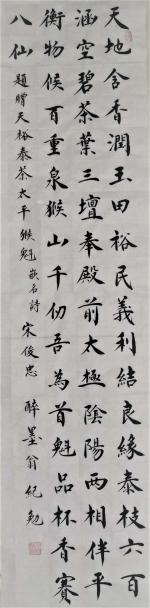 天地含香潤玉田裕民義利結良緣泰枝六百
涵空碧茶葉三壇奉殿前太極陰陽两相伴平
衡物候百重泉猴山千仞吾為首魁品杯香賽
八仙 題贈天裕泰茶太平猴魁嵌名詩 宋俊忠 醉墨翁紀勉